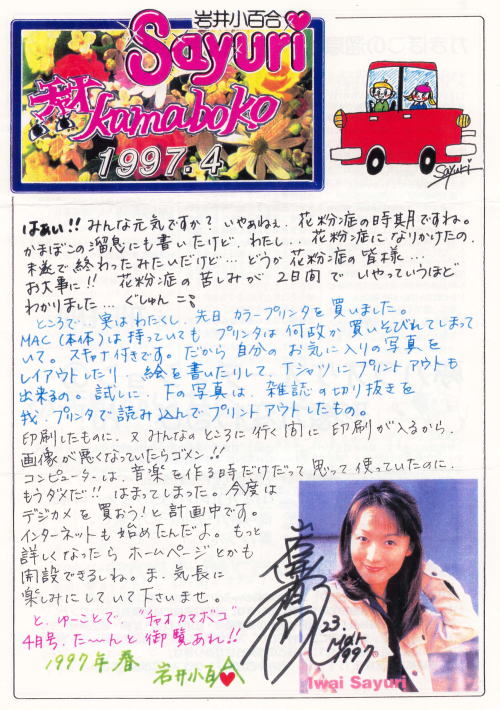 岩井小百合
Sayuri
チャオ
kamaboko
1997.4
Sayuri
はぁい!! みんな元気ですか? いやぁねぇ、花粉症の時期ですね。
かまぼこの溜息にも書いたけど、わたし... 花粉症になりかけたの。
未遂で終わったみたいだけど... どうか花粉症の皆様...
お大事に!! 花粉症の苦しみが 2日間で いやっていうほど
わかりました... ぐしゅん
ところで... 実はわたくし、先日 カラープリンタを買いました。
MAC(本体)は持っていても プリンタは何故か買いそびれてしまって
いて。スキャナ付きです。だから自分のお気に入りの写真を
レイアウトしたり、絵を書いたりして、Tシャツにプリントアウトも
出来るの。試しに、下の写真は、雑誌の切り抜きを
我、プリンタで読み込んでプリントアウトしたもの。
印刷したものに、又みんなのところに行く間に 印刷が入るから、
画像が悪くなっていたらゴメン!!
コンピューターは、音楽を作る時だけだって思って使っていたのに、
もうダメだ!! はまってしまった。今度は
デジカメを買おう!と計画中です。
インターネットも始めたんだよ。もっと
詳しくなったら ホームページとかも
開設できるしね。ま、気長に
楽しみにしていて下さいませ。
と、ゆーことで、"チャオカマボコ"
4月号、た〜んと御覧あれ!!
1997年春 岩井小百合
23.
Mar.
1997
Iwai Sayuri